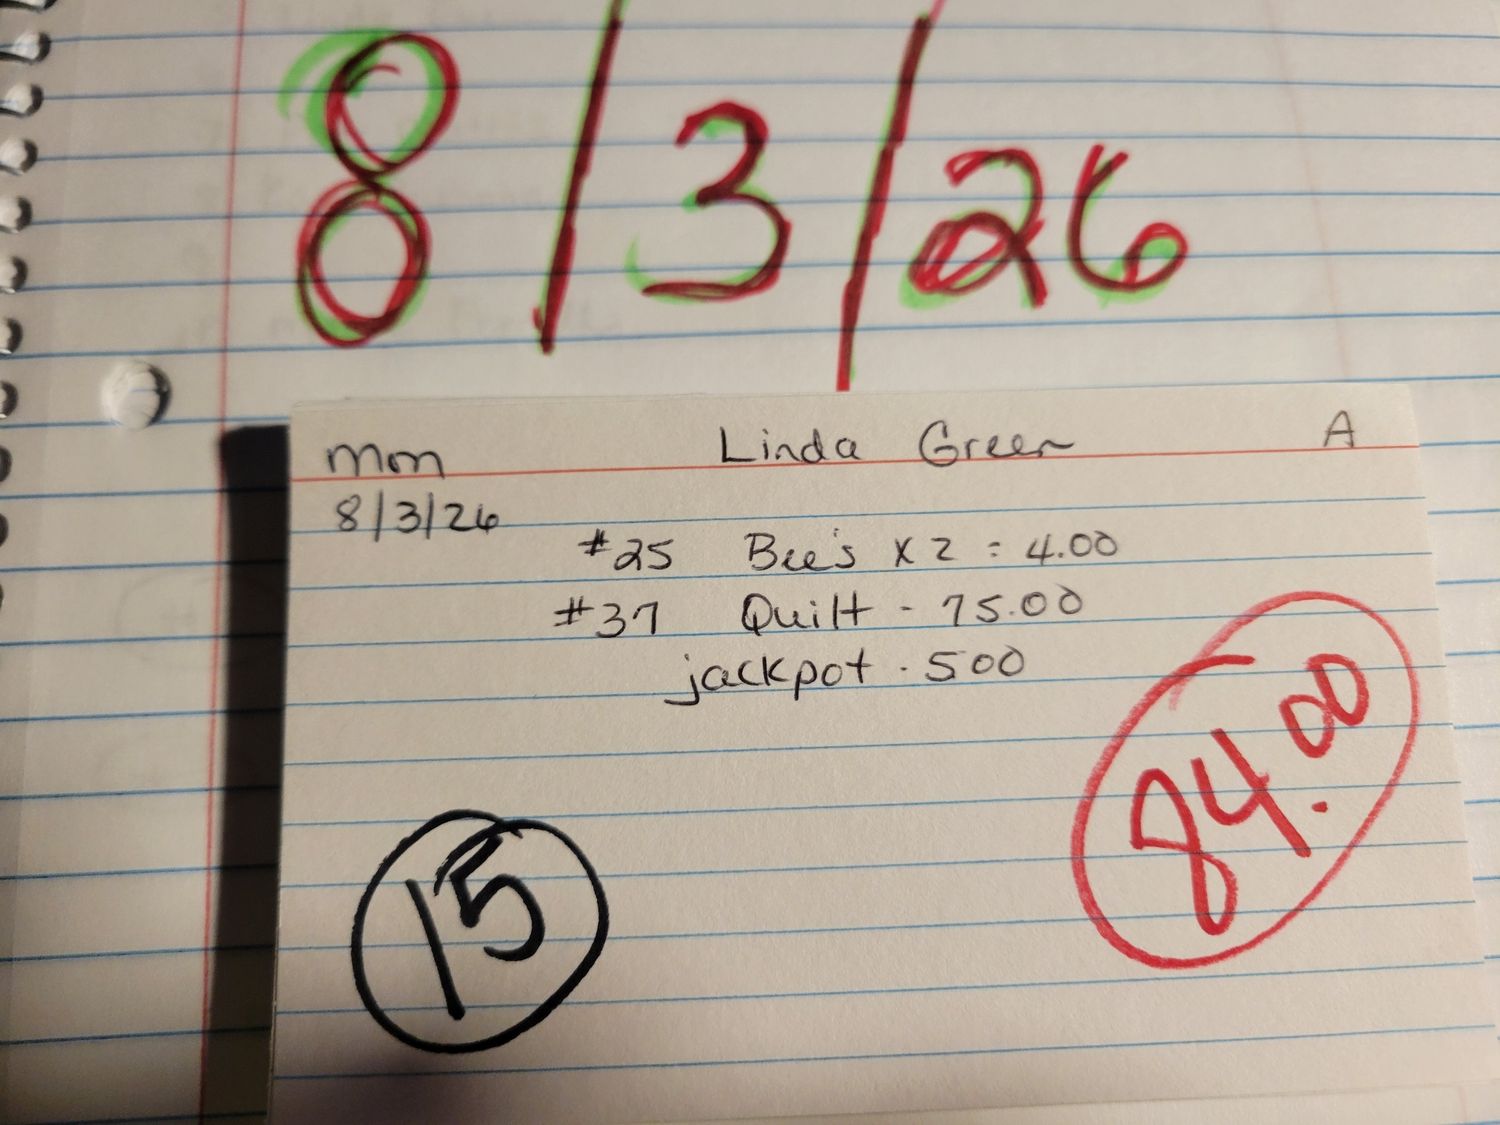 8/3/26
Mon Linda Green A
8/3/26
#25 Bee's x 2 = 4.00
#37 Quilt - 75.00
jackpot - 500
84.00
15